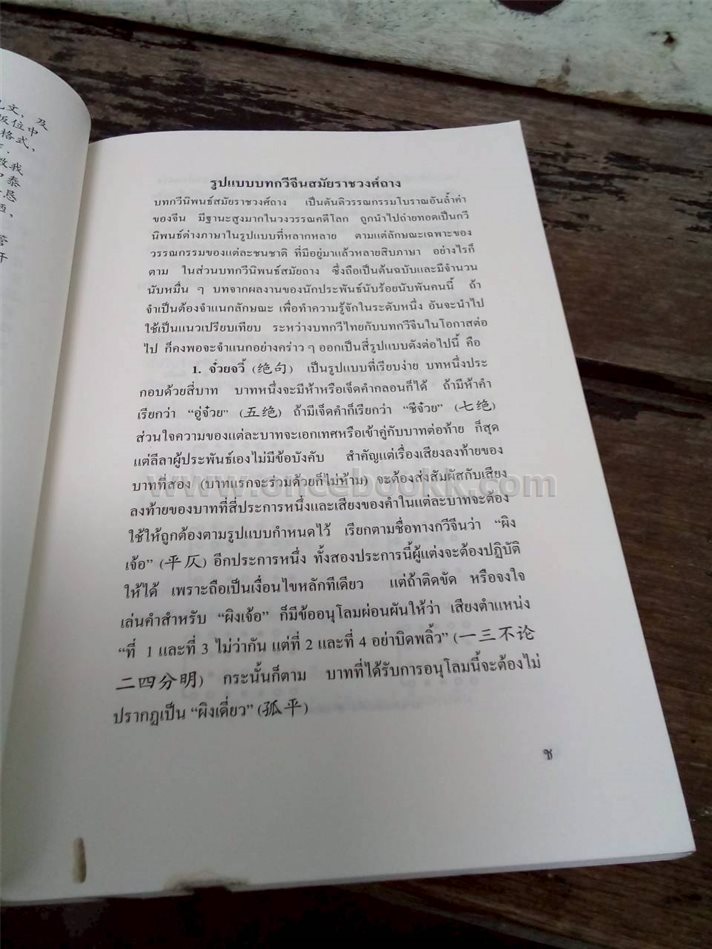 文, 及
版位中
格式,
改我
中泰
恳
酒,
รูปแบบบทกวีจีนสมัยราชวงศ์ถาง
บทกวีนิพนธ์สมัยราชวงศ์ถาง เป็นต้นติวรรณกรรมโบราณอันล้ำค่า
ของจีน มีฐานะสูงมากในวงวรรณคดีโลก ถูกนำไปถ่ายทอดเป็นกวี
นิพนธ์ต่างภาษาในรูปแบบที่หลากหลาย ตามแต่ลักษณะเฉพาะของ
วรรณกรรมของแต่ละชนชาติ ที่มีอยู่มาแล้วหลายสิบภาษา อย่างไรก็
ตาม ในส่วนบทกวีนิพนธ์สมัยถาง ซึ่งถือเป็นต้นฉบับและมีจำนวน
นับหมื่น ๆ บทจากผลงานของนักประพันธ์นับร้อยนับพันคนนี้ ถ้า
จำเป็นต้องจำแนกลักษณะ เพื่อทำความรู้จักในระดับหนึ่ง อันจะนำไป
ใช้เป็นแนวเปรียบเทียบ ระหว่างบทกวีไทยกับบทกวีจีนในโอกาสต่อ
ไป ก็คงพอจะจำแนกอย่างคร่าว ๆ ออกเป็นสี่รูปแบบดังต่อไปนี้ คือ
1. จั๋วยจวี้ (绝句) เป็นรูปแบบที่เรียบง่าย บทหนึ่งประ
กอบด้วยสี่บาท บาทหนึ่งจะมีห้าหรือเจ็ดคำกลอนก็ได้ ถ้ามีห้าคำ
เรียกว่า “อู่จ๋วย” (五绝) ถ้ามีเจ็ดคำก็เรียกว่า “ชีจ๋วย” (七绝)
ส่วนใจความของแต่ละบาทจะเอกเทศหรือเข้าคู่กับบาทต่อท้าย ก็สุด
แต่ลีลาผู้ประพันธ์เองไม่มีข้อบังคับ สำคัญแต่เรื่องเสียงลงท้ายของ
บาทที่สอง (บาทแรกจะร่วมด้วยก็ไม่ห้าม) จะต้องส่งสัมผัสกับเสียง
www.oncebookk.com
ลงท้ายของบาทที่สี่ประการหนึ่งและเสียงของคำในแต่ละบาทจะต้อง
ใช้ให้ถูกต้องตามรูปแบบกำหนดไว้ เรียกตามชื่อทางกวีจีนว่า “ผิง
เจ้อ” (平仄) อีกประการหนึ่ง ทั้งสองประการนี้ผู้แต่งจะต้องปฏิบัติ
ให้ได้ เพราะถือเป็นเงื่อนไขหลักทีเดียว แต่ถ้าติดขัด หรือจงใจ
เล่นคำสำหรับ “ผิงเจ้อ” ก็มีข้ออนุโลมผ่อนผันให้ว่า เสียงตำแหน่ง
“ที่ 1 และที่ 3 ไม่ว่ากัน แต่ที่ 2 และที่ 4 อย่าบิดพลิ้ว” (一三不论
二四分明) กระนั้นก็ตาม บาทที่ได้รับการอนุโลมนี้จะต้องไม่
ปรากฏเป็น “ผิงเดี่ยว” (孤平)
ช